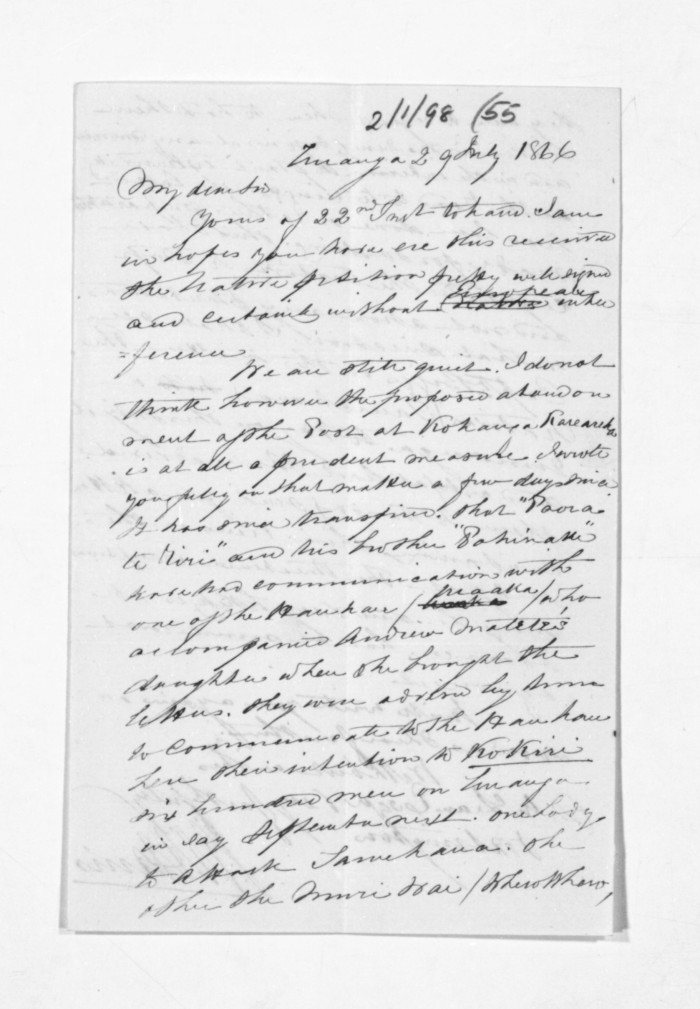 2/1/98 (55
Turanga 29 July 1866
My dear Sir
Yours of 22nd Inst to hand. I am
in hopes you have ere this received
the Native petition pretty well signed
and certainly without European inter
=ference
We are still quiet. I do not
think however the proposed abandon
ment of the Post at Kohanga Karearea
is at all a prudent measure. I wrote
you fully on that matter a few days since
It has since transpired that "Paora
te " and his brother "Pahinaki"
have had communication with
one of the Hauhau / /who
accompanied Andrew
daughter when she brought the
letters. They were advised by them
to communicate to the Hauhau
here their intention to Kokiri
six hundred men on Turanga
in say September next. One body
to attack Tawehaua. The
other the Muri Wai /WheroWhero,